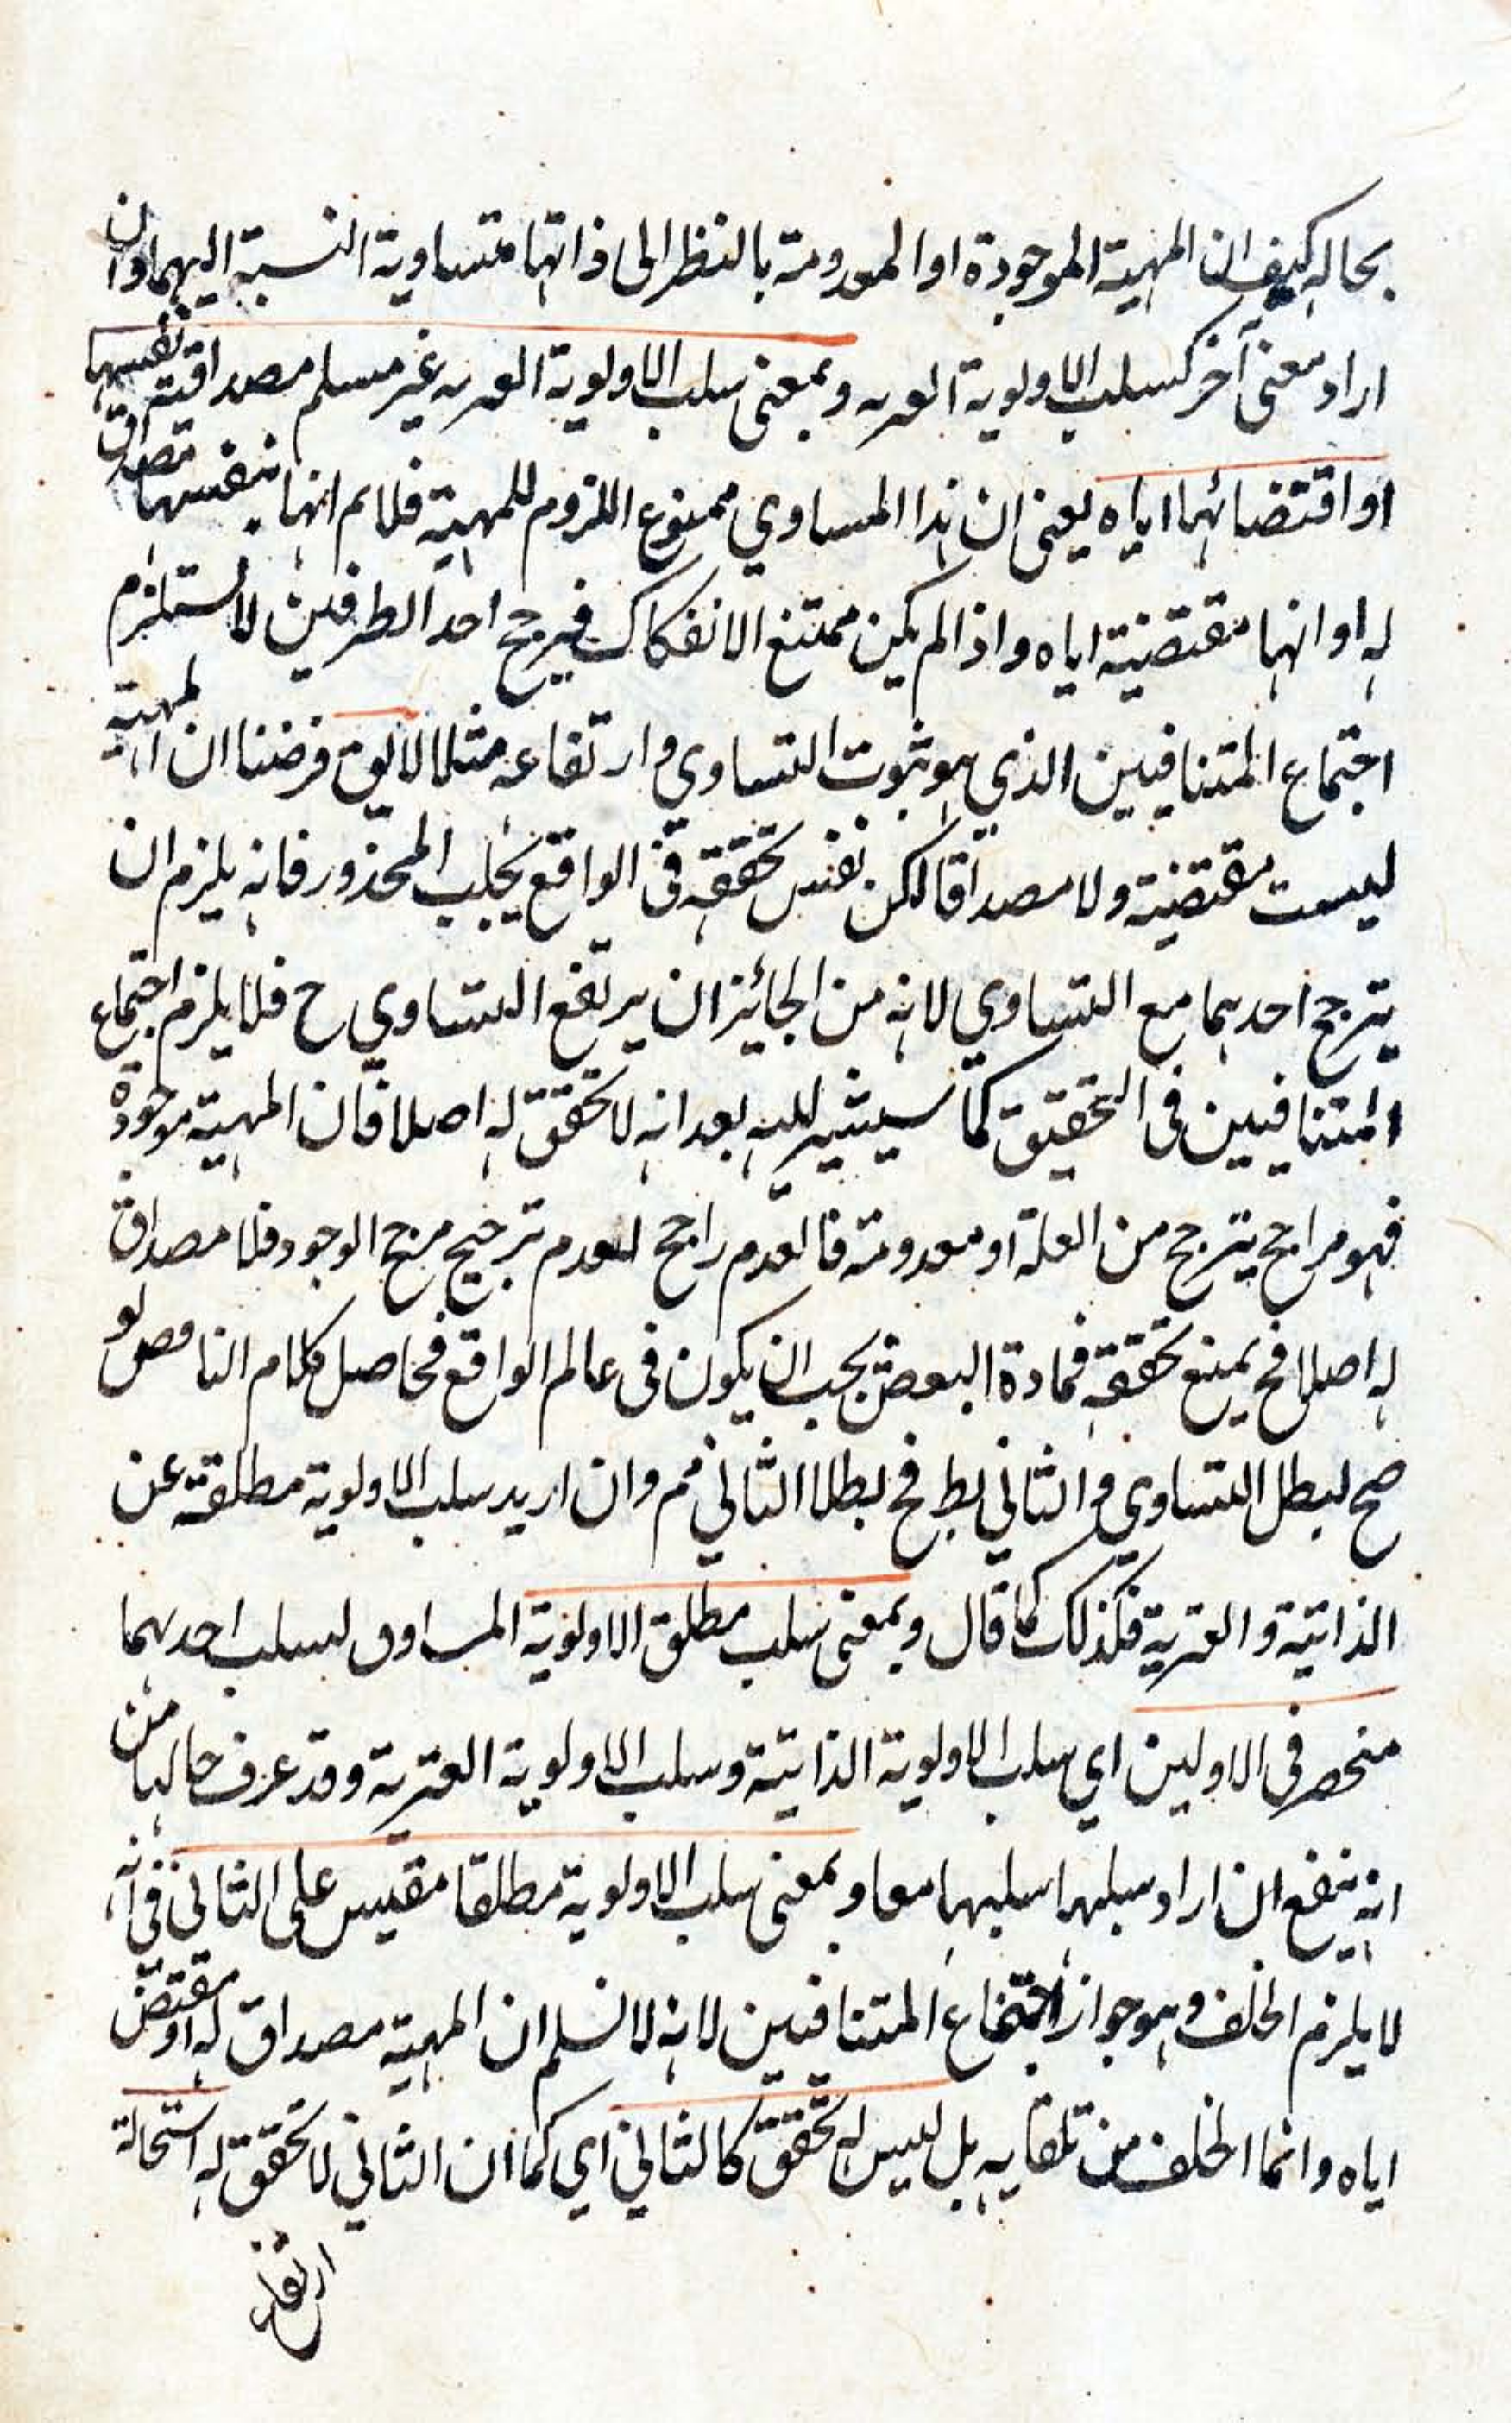 بحاله كيف ان المهية الموجودة او المعدومة بالنظر الى ذاتها متساوية النسبة اليهما وان
اراد معنى آخر كسلب الاولوية الغيرية وبمعنى سلب الاولوية الغيرية غير مسلم مصداقية نفسها
او اقتضائهما اياه يعنى ان هذا المساوي ممنوع اللزوم للمهية فلا نم انها بنفسها مصداق
له او انها مقتضية اياه واذا لم يكن ممتنع الانفكاك فيرجح احد الطرفين لا يستلزم
اجتماع المتنافيين الذي هو ثبوت التساوي وارتفاعه مثلا لا يق فرضنا ان المهية
ليست مقتضية ولا مصداقا لكن نفس تحققه فى الواقع يجلب المحذور فانه يلزم ان
يترجح احدهما مع التساوي لانه من الجائز ان يرتفع التساوي ح فلا يلزم اجتماع
المتنافيين فى التحقيق كما سيشير اليه بعد انه لا تحقق له اصلا فان المهية موجودة
فهو مراجح يترجح من العلة او معدومة فالعدم راجح لعدم ترجيح مرجح الوجود فلا مصداق
له اصلا فح يمنع تحققه فمادة البعض يجب ان يكون فى عالم الواقع فحاصل كلام النا قض لو
صح لبطل التساوي والثاني بط فح بطلا الثاني مم وان اريد سلب الاولوية مطلقة عن
الذاتية والغيرية فكذلك كما قال وبمعنى سلب مطلق الاولوية المساوق لسلب احدهما
منحصر فى الاولين اي سلب الاولوية الذاتية وسلب الاولوية الغيرية وقد عرف حالها من
انه ينفع ان اراد سبلهما سلبهما معا وبمعنى سلب الاولوية مطلقا مقيس على الثانى فى انه
لا يلزم الخلف وهو جواز اجتماع المتنافيين لانه لا نسلم ان المهية مصداق له او مقتض
اياه وانما الخلف من تلقايه بل ليس له تحقق كالثاني اي كما ان الثاني لا تحقق له استحالة